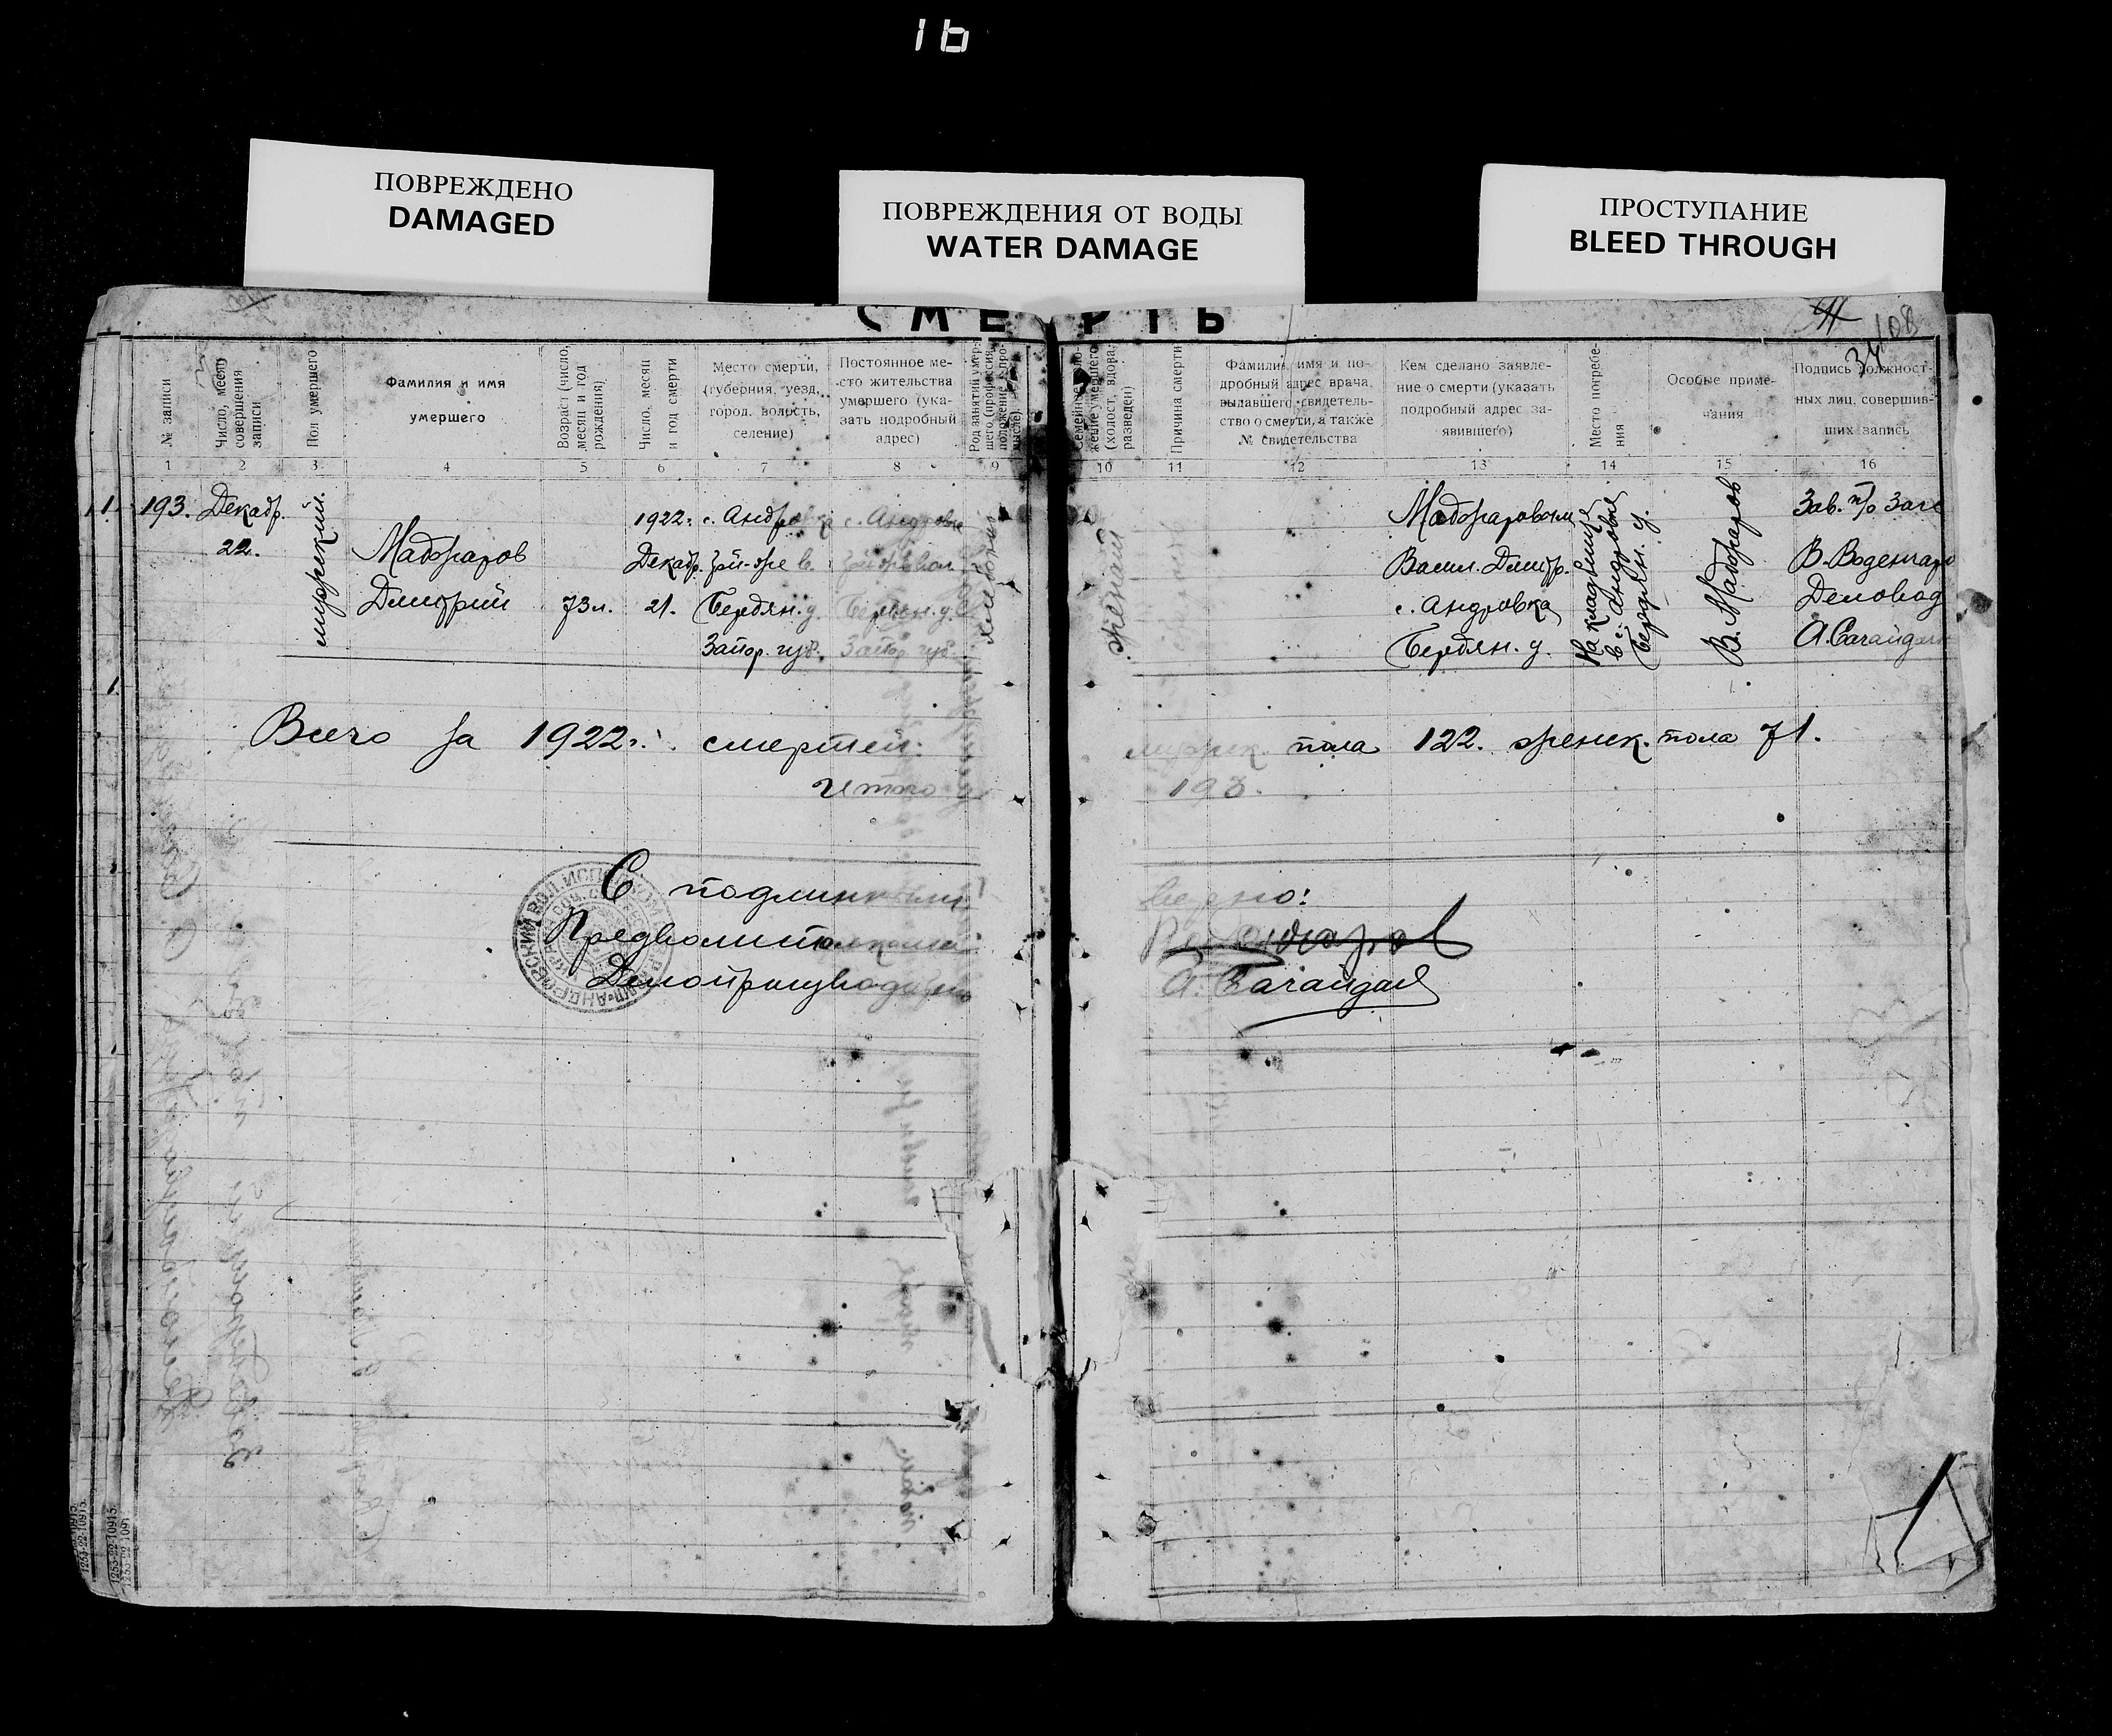 16
ПОВРЕЖДЕНО
DAMAGED
ПОВРЕЖДЕНИЯ ОТ ВОДЫ
WATER DAMAGE
ПРОСТУПАНИЕ
BLEED THROUGH
СМЕРТЬ
108
34
№ записи
Число, месяц совершения записи
Пол умершего
Фамилия и имя
умершего
Возраст (число, месяц и год рождения)
Число, месяц и год смерти
Место смерти,
(губерния, уезд,
город, волость,
селение)
Постоянное ме-
сто жительства
умершего (ука-
зать подробный
адрес)
Род занятий умер-
шего (профессия,
положение в про-
мысле)
Семейное поло-
жение умершего
(холост, вдова,
разведен)
Причина смерти
Фамилия, имя и по-
дробный адрес врача,
выдавшего свидетель-
ство о смерти, а также
№ свидетельства
Кем сделано заявле-
ние о смерти (указать
подробный адрес за-
явившего)
Место погребе-
ния
Особые приме-
чания
Подпись должност-
ных лиц, совершив-
ших запись
1 2 3 4 5 6 7 8 9 10 11 12 13 14 15 16
193.
Декабр.
22.
мужский.
Маджаров
Дмитрий
73 л.
1922 г.
Декабр.
21.
с. Андровка
Бердян. у.
Запор. губ.
с. Андровка
Бердян. у.
Запор. губ.
женат
Маджаровым
Васил. Дмитр.
с. Андровка
Бердян. у.
На кладбище
в с. Андровке
Бердян. у.
В. Маджаров
Зав. п/о Загс
Деловод
Всего за 1922 г. смертей: мужск. пола 122. женск. пола 71.
Итого 193.
С подлинным верно:
Предволисполкома
Делопроизводитель
1253-22-10915